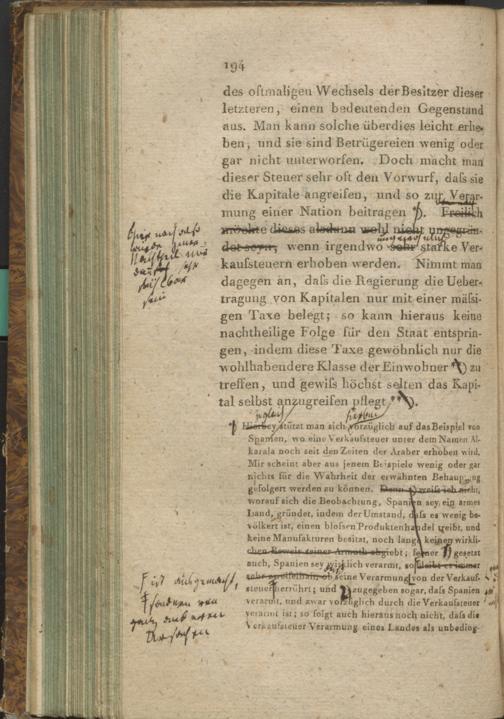 194
des oftmaligen Wechsels der Besitzer dieser
letzteren, einen bedeutenden Gegenstand
aus. Man kann solche überdies leicht erhe-
ben, und sie sind Betrügereien wenig oder
gar nicht unterworfen. Doch macht man
dieser Steuer sehr oft den Vorwurf, daſs sie
die Kapitale angreifen, und so zur Verar-
mung einer Nation beitragen *). Freilich
möchte dieses alsdann wohl nicht ungegrün-
det seyn, wenn irgendwo sehr starke Ver-
kaufsteuern erhoben werden. Nimmt man
dagegen an, daſs die Regierung die Ueber-
tragung von Kapitalen nur mit einer mäſsi-
gen Taxe belegt; so kann hieraus keine
nachtheilige Folge für den Staat entsprin-
gen, indem diese Taxe gewöhnlich nur die
wohlhabendere Klasse der Einwohner *) zu
treffen, und gewiſs höchst selten das Kapi-
tal selbst anzugreifen pflegt **).
Hierbey stützt man sich vorzüglich auf das Beispiel von
Spanien, wo eine Verkaufsteuer unter dem Namen Al-
kavala noch seit den Zeiten der Araber erhoben wird.
Mir scheint aber aus jenem Beispiele wenig oder gar
nichts für die Wahrheit der erwähnten Behauptung
gefolgert werden zu können. Denn weiſs ich nicht,
worauf sich die Beobachtung, Spanien sey ein armes
Land, gründet, indem der Umstand, daſs es wenig be-
völkert ist, einen bloſsen Produktenhandel treibt, und
keine Manufakturen besitzt, noch lange keinen wirkli-
chen Beweis seiner Armuth abgiebt; ferner gesetzt
auch, Spanien sey wirklich verarmt, so bleibt es immer
sehr zweifelhaft, ob seine Verarmung von der Verkauf-
steuer herrührt; und zugegeben sogar, daſs Spanien
verarmt, und zwar vorzüglich durch die Verkaufsteuer
verarmt ist; so folgt auch hieraus noch nicht, daſs die
Verkaufsteuer Verarmung eines Landes als unbeding-